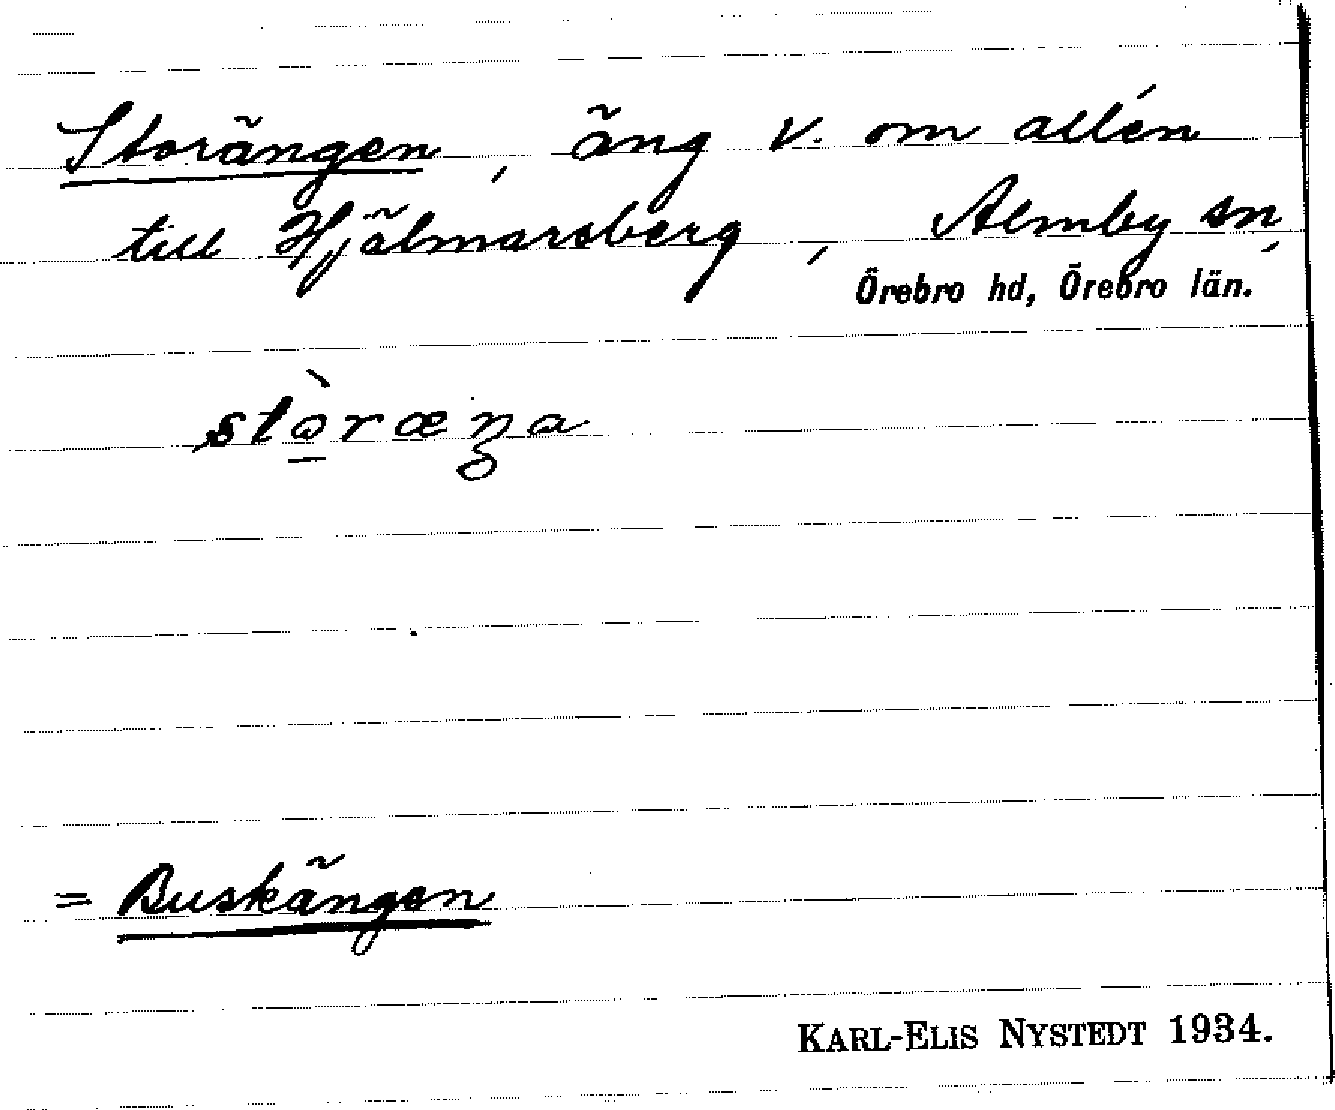 Storängen, äng v. om allén
till Hjälmarsberg, Almby sn,
Örebro hd, Örebro län.
stɷ̀ræŋa
= Buskängen
KARL-ELIS NYSTEDT 1934.